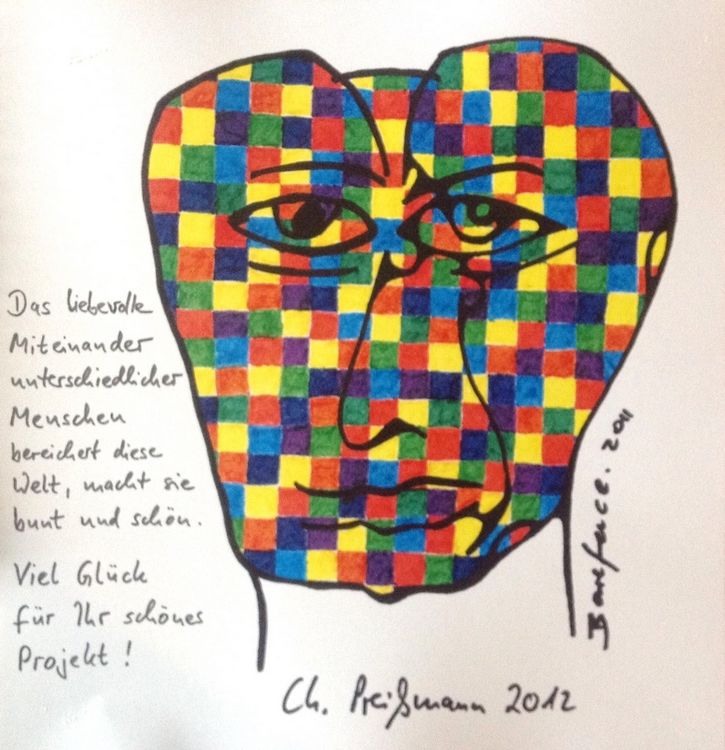 Das liebevolle
Miteinander
unterschiedlicher
Menschen
bereichert diese
Welt, macht sie
bunt und schön.
Viel Glück
für Ihr schönes
Projekt!
Ch. Preißmann 2012
Bareface. 2011